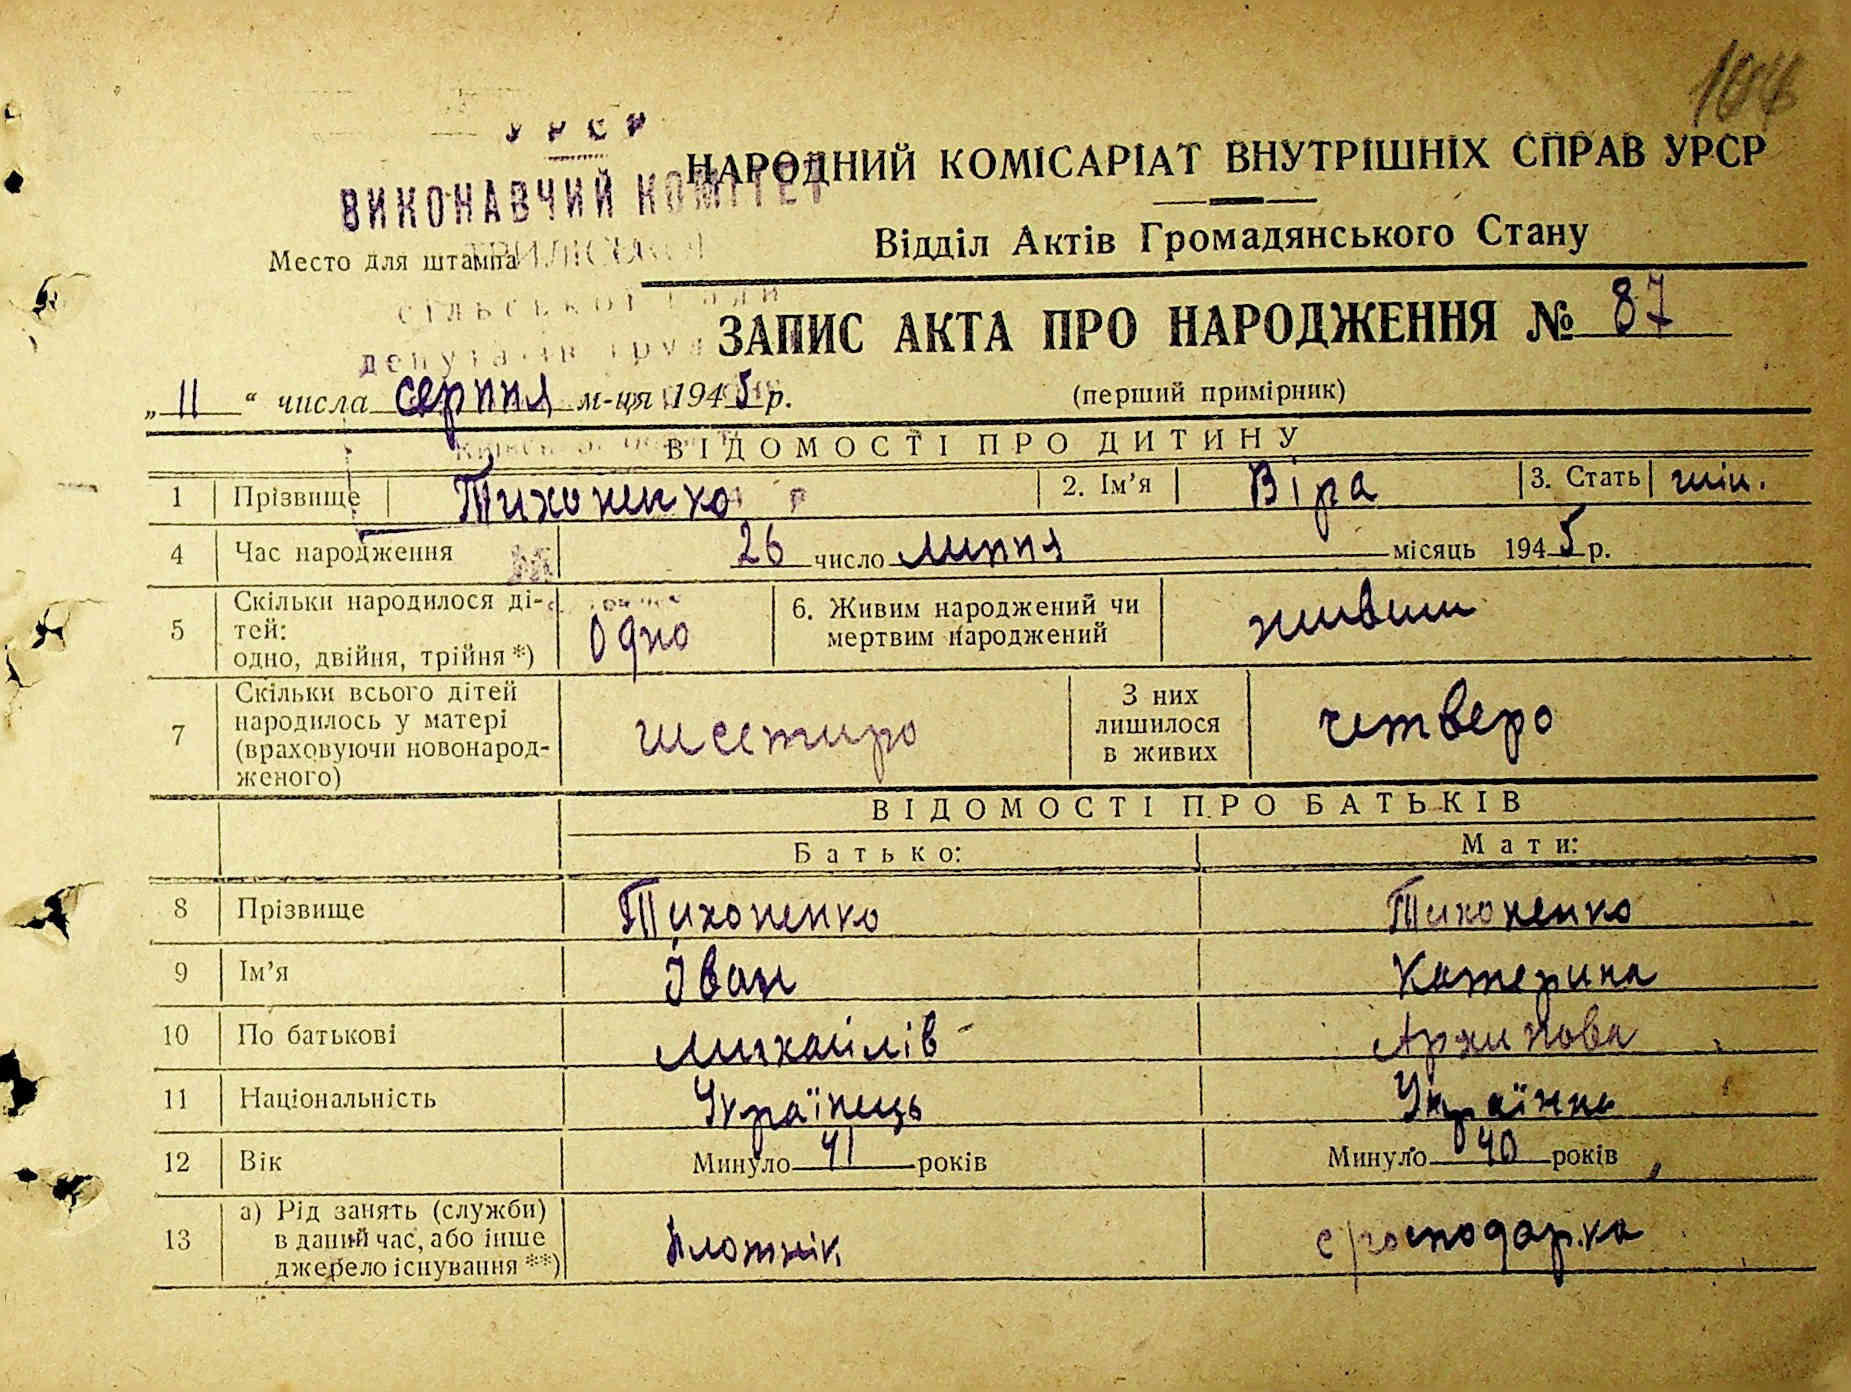 104
УРСР
ВИКОНАВЧИЙ КОМІТЕТ
НАРОДНИЙ КОМІСАРІАТ ВНУТРІШНІХ СПРАВ УРСР
Відділ Актів Громадянського Стану
Место для штампа
сільської Ради
депутатів
ЗАПИС АКТА ПРО НАРОДЖЕННЯ № 87
„11“ числа серпня м-ця 1945 р. (перший примірник)
ВІДОМОСТІ ПРО ДИТИНУ
1 Прізвище Тихоненко 2. Ім’я Віра 3. Стать жін.
4 Час народження 26 число липня місяць 1945 р.
5 Скільки народилося ді-
тей:
одно, двійня, трійня *) Одно 6. Живим народжений чи
мертвим народжений живим
7 Скільки всього дітей
народилось у матері
(враховуючи новонарод-
женого) шестиро З них
лишилося
в живих четверо
ВІДОМОСТІ ПРО БАТЬКІВ
Батько: Мати:
8 Прізвище Тихоненко Тихоненко
9 Ім’я Іван Катерина
10 По батькові Михайлів Архипова
11 Національність Українець Українка
12 Вік Минуло 41 років Минуло 40 років
13 а) Рід занять (служби)
в даний час, або інше
джерело існування **) плотнік господарка